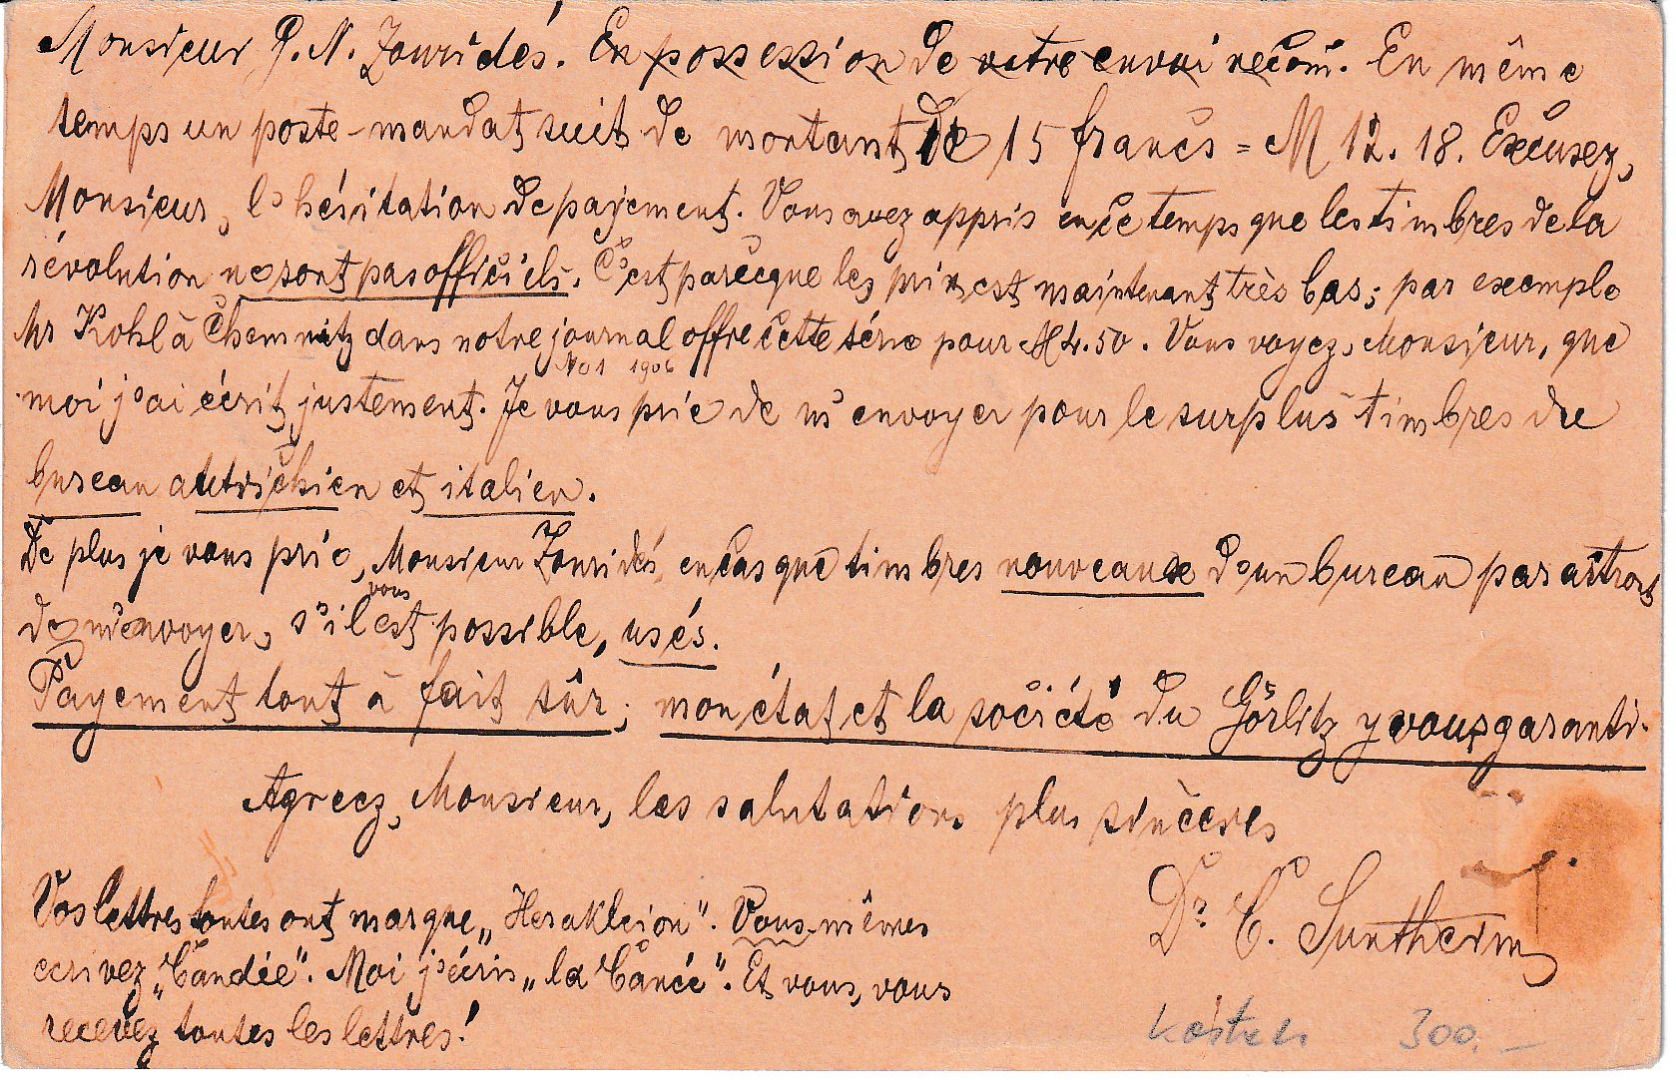 Monsieur P. N. Zouridés. En possession de votre envoi recom̄. En même
temps un poste-mandat suit de montant de 15 francs = M 12.18. Excusez,
Monsieur, l'hésitation de payement. Vous avez appris en ce temps que les timbres de la
révolution ne sont pas officiels. C'est parecque les prix est maintenant très bas; par exemple
Mr Kohl à Chemnitz dans notre journal offre cette série pour M 4.50. Vous voyez, Monsieur, que
No 1 1906
moi j'ai écrit justement. Je vous prie de m'envoyer pour le surplus timbres du
bureau autrichien et italien.
De plus je vous prie, Monsieur Zouridés, en cas que timbres nouveaux d'un bureau paraîtront
vous
de m'envoyer, s'il est possible, usés.
Payement tout à fait sûr; mon état et la société du Görlitz y vous garanti.
Agreez, Monsieur, les salutations plus sincères
Dr. C. Suntheim
Vos lettres toutes ont marque „Herakleion“. Vous-mêmes
ecrivez „Candie“. Moi j'écris „la Canée“. Et vous, vous
recevez toutes les lettres!
300.–